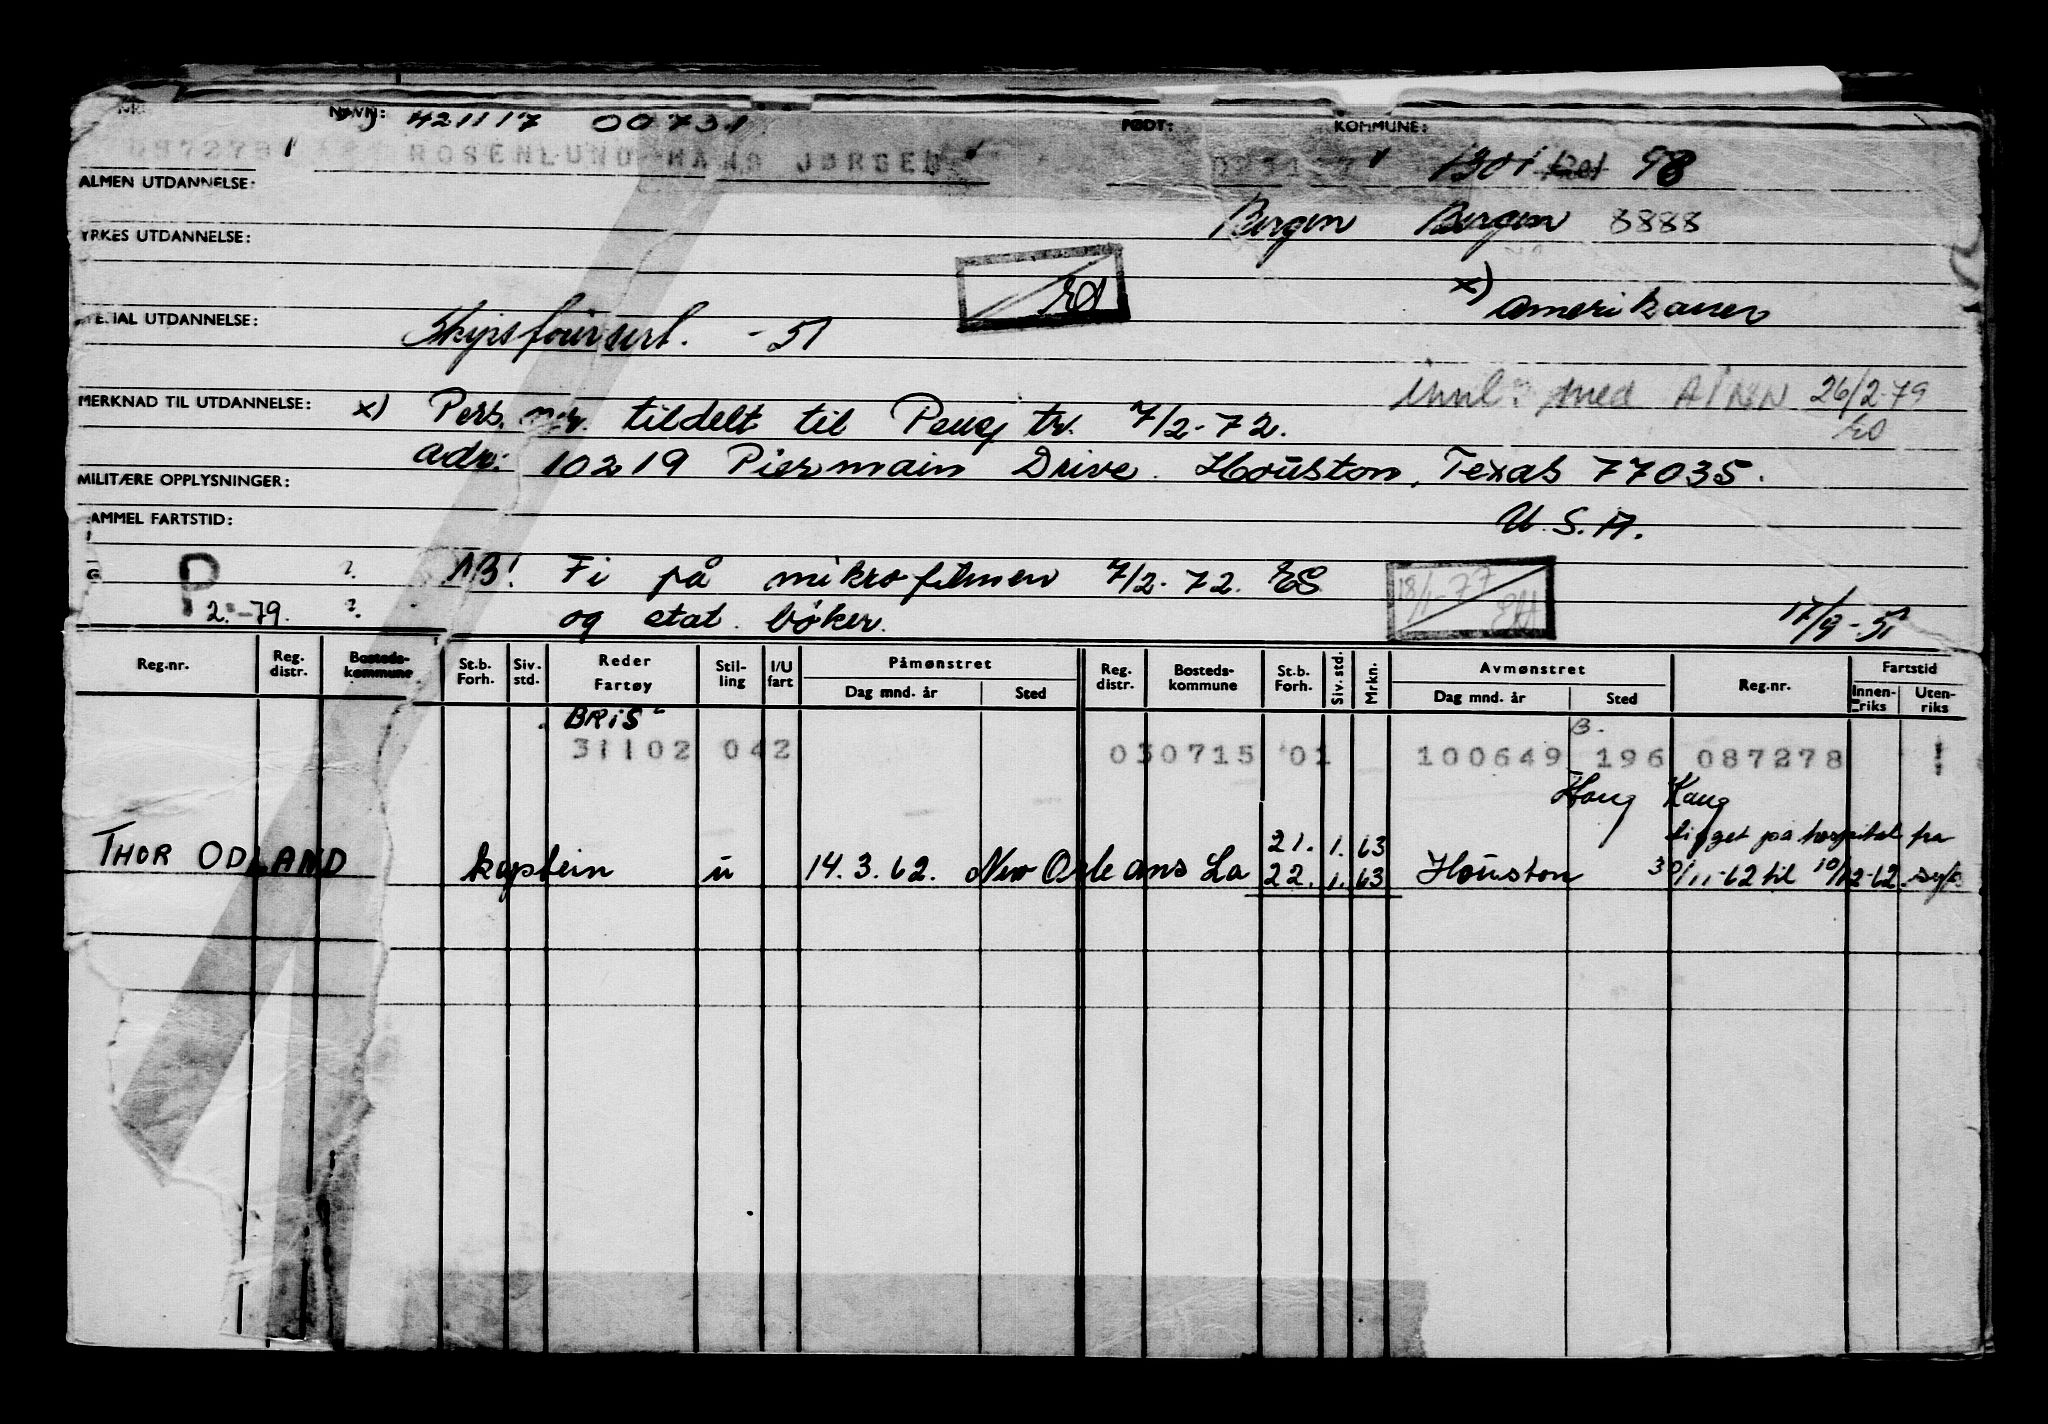 NAVN: 421117 00731 FØDT: KOMMUNE:
087278 ROSENLUND HANS JØRGEN 1301 98
ALMEN UTDANNELSE:
Bergen Bergen 8888
YRKES UTDANNELSE:
x) Amerikaner
UTDANNELSE: -51
innl. med 26/2-79
MERKNAD TIL UTDANNELSE: x) Pers. nr. tildelt til Pensj tr. 7/2-72.
adr: 10219 Piermain Drive. Houston, Texas 77035.
MILITÆRE OPPLYSNINGER:
U.S.A.
AMMEL FARTSTID:
P ? NB! Fi på mikrofilmen 7/2-72. ES 18/1-77
2.-79. ? og stat. bøker. 17/9-51
Reg.nr. Reg. distr. Bosteds-kommune St.b. Forh. Siv. std. Reder Fartøy Stil-ling I/U fart Påmønstret Dag mnd. år Sted Reg. distr. Bosteds-kommune St.b. Forh. Siv. std. Mrkn. Avmønstret Dag mnd. år Sted Reg.nr. Fartstid Innen-riks Uten-riks
BRIS
31102 042 030715 01 100649 196 087278
Hong Kong
21. 1. 63 ligget på hospital fra
THOR ODLAND kaptein u 14.3.62. New Orleans La 22. 1. 63 Houston 30/11-62 til 10/12-62.